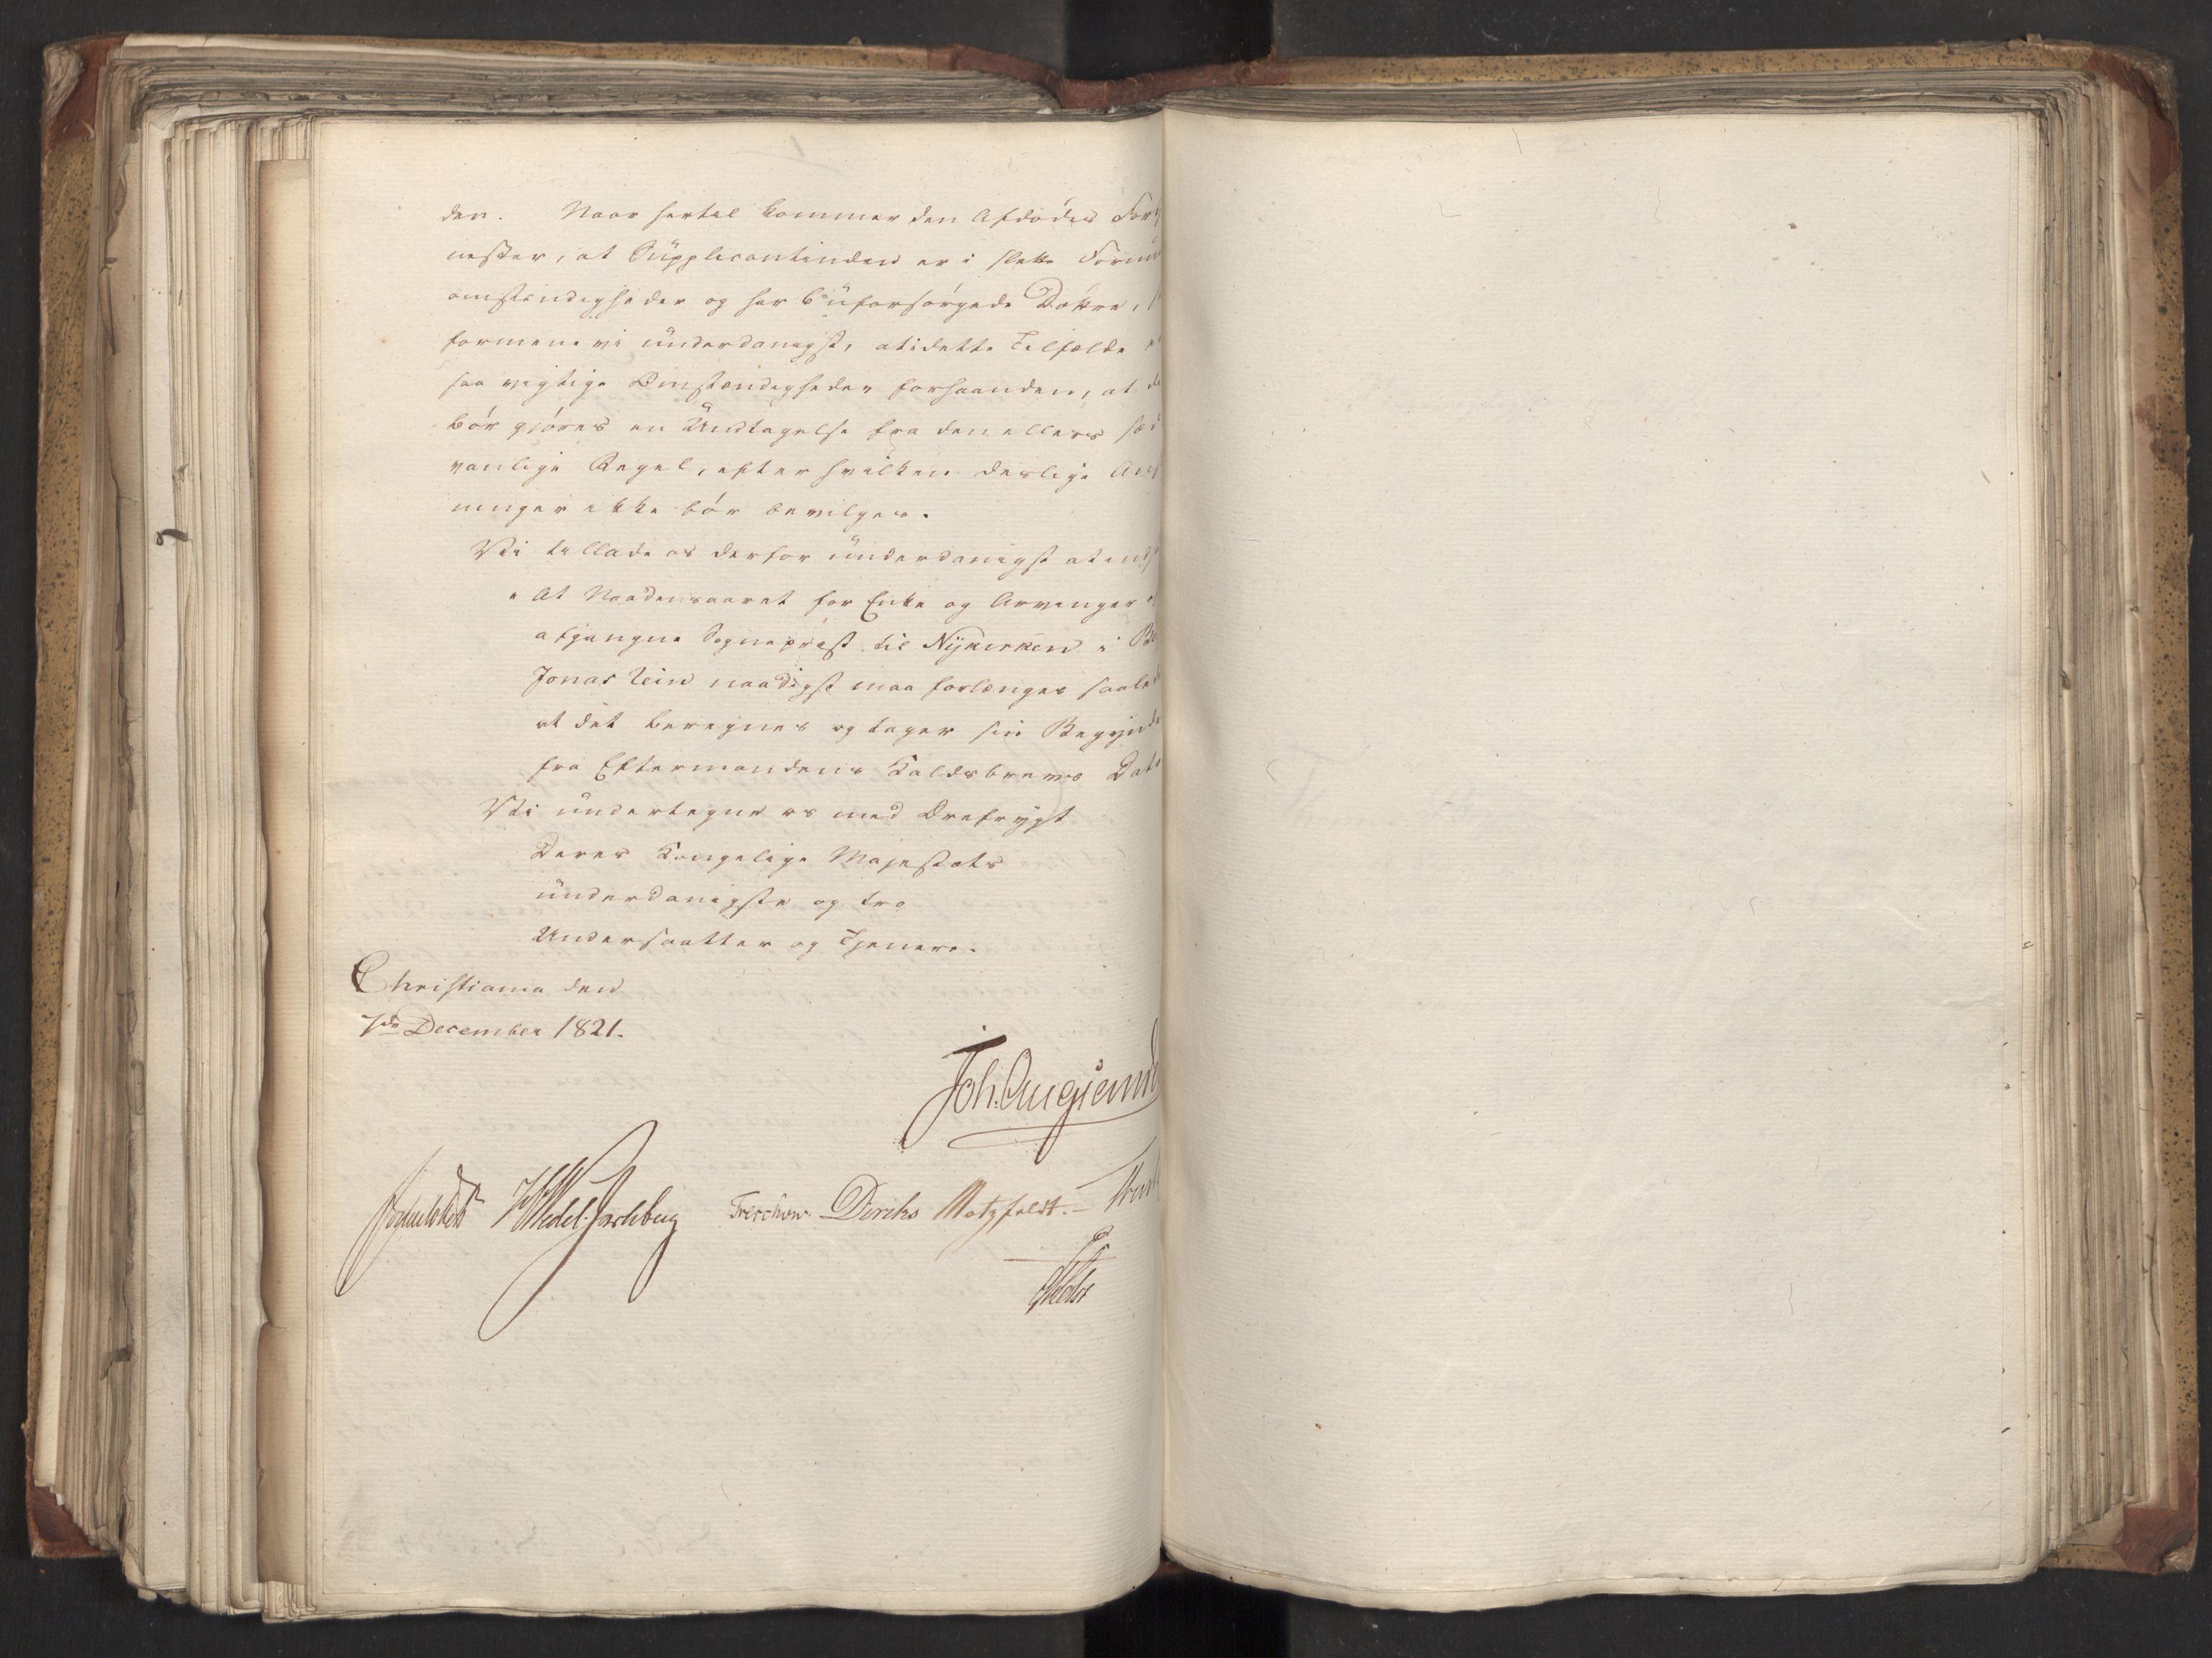 den. Naar hertil kommer den Afdødes For
nester, at Supplicantinden er i slette Formu
omstændigheder og har 6 uforsørgede Døttre,
formene vi underdanigst, at i dette Tilfælde
saa vigtige Omstændigheder forhaanden, at de
bør gjøres en Undtagelse fra den ellers sæd
vanlige Regel, efter hvilken deslige Ans
ninger ikke bør bevilges.
Vi tillade os derfor underdanigst at inds
" At Naadensaaret for Enke og Arvinger
afgangne Sognepræst til Nykirken i Be
Jonas Rein naadigst maa forlænges saaled
at det beregnes og tager sin Begynde
fra Eftermandens Kaldsbrevs Dato
Vi undertegne os med Ærefrygt
Deres Kongelige Majestæts
underdanigste og tro
Undersaatter og Tjenere.
Christiania den
7de December 1821.
Joh. Aug. Sand
Sommerhielm HWedel Jarlsberg Treschow Diriks Motzfeldt. –
Holst